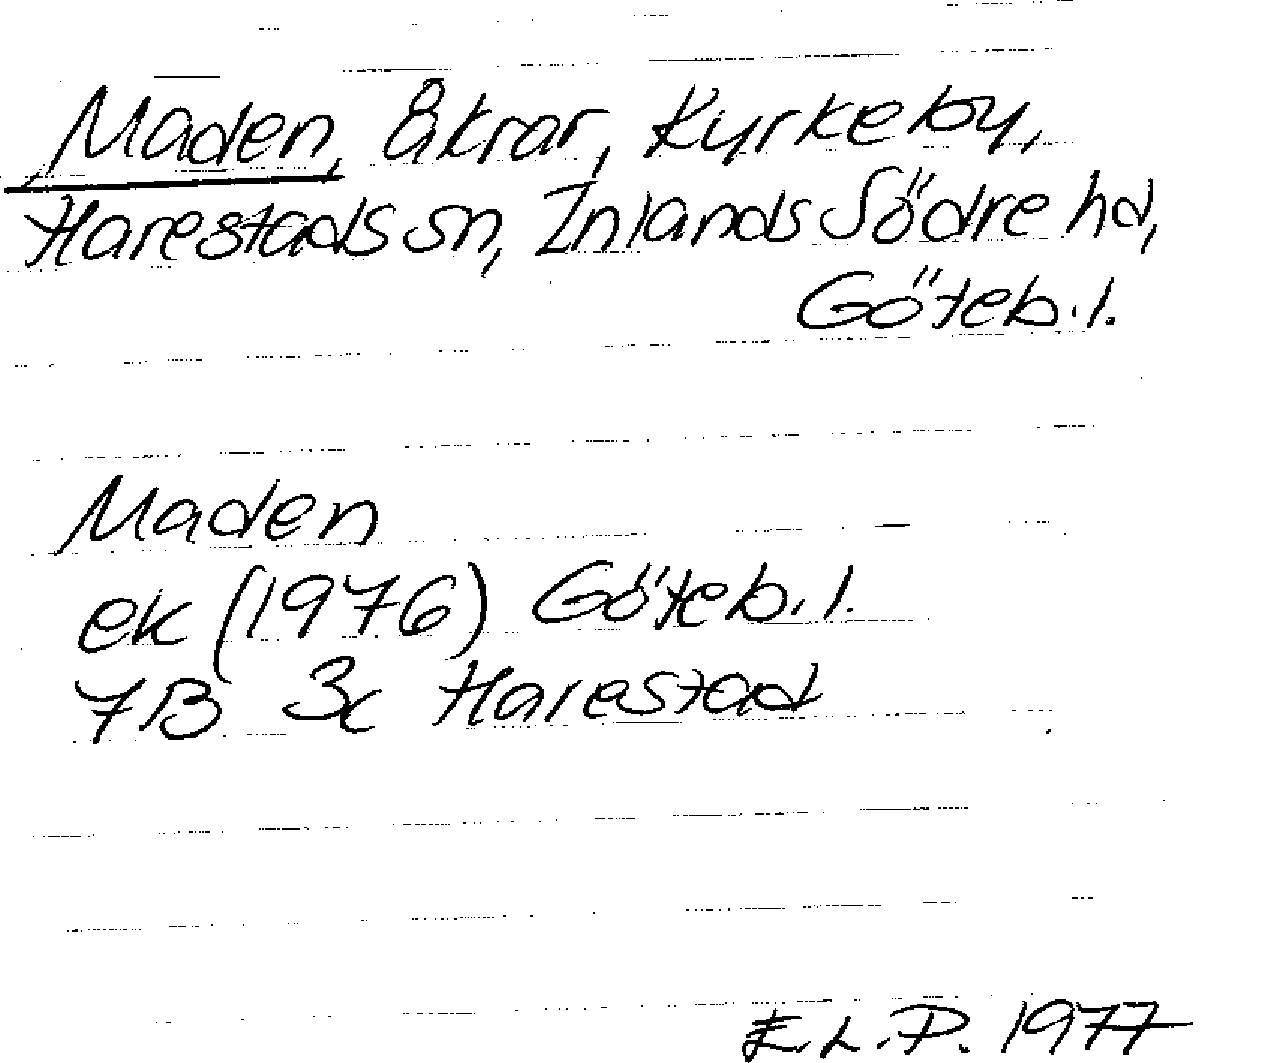 Maden, Åkrar, Kyrkeby,
Harestads sn, Inlands Södre hd,
Göteb. l.
Maden
ek (1976) Göteb. l.
7B 3c Harestad
E.L.P. 1977